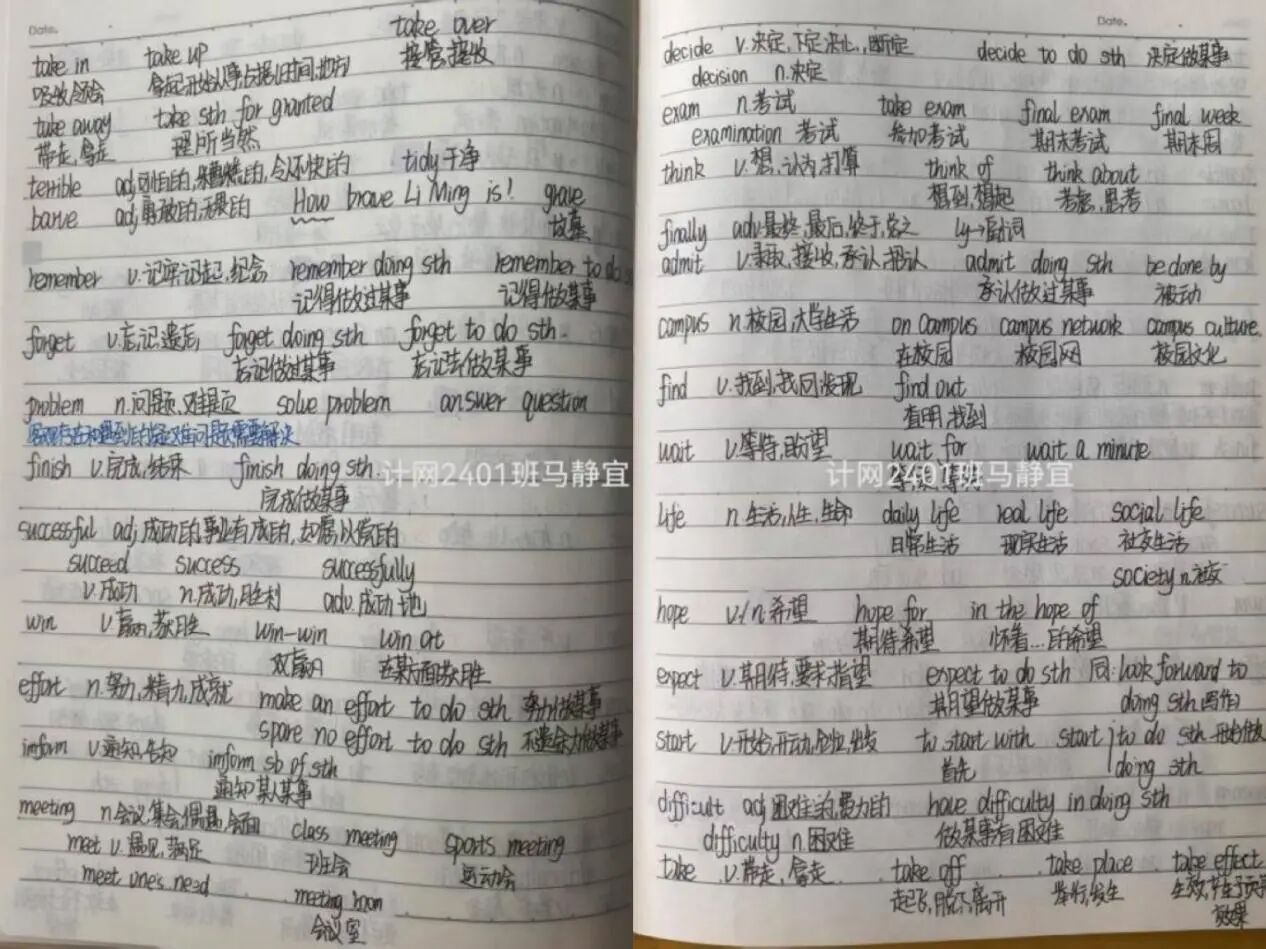 Date.
take over
take in take up 接管,接收
吸收,领会 拿起,开始从事,占据(时间,地方)
take away take sth for granted
带走,拿走 理所当然
terrible adj.可怕的,糟糕的,令人不快的 tidy 干净
barve adj.勇敢的,无畏的 How brave Li Ming is! grave
故墓
remember v.记牢,记起,纪念 remember doing sth remember to do s
记得做过某事 记得做某事
forget v.忘记,遗忘 forget doing sth forget to do sth.
忘记做过某事 忘记去做某事
problem n.问题,难题 solve problem answer question
finish v.完成,结束 finish doing sth.
完成做某事
successful adj.成功的,事业有成的,如愿以偿的
succeed success successfully
v.成功 n.成功,胜利 adv.成功地
win v.赢,获胜 win-win win at
双赢 在某方面获胜
effort n.努力,精力,成就 make an effort to do sth 努力做某事
spare no effort to do sth 不遗余力做某事
inform v.通知,告知 inform sb of sth
通知某人某事
meeting n.会议,集会,偶遇,会面 class meeting sports meeting
met v.遇见,满足 班会 运动会
meet one's need meeting room
会议室
Date.
decide v.决定,下定决心,断定 decide to do sth 决定做某事
decision n.决定
exam n.考试 take exam final exam final week
examination 考试 参加考试 期末考试 期末周
think v.想,认为,打算 think of think about
想到,想起 考虑,思考
finally adv.最终,最后,终于,总之 ly→副词
admit v.录取,接收,承认,招认 admit doing sth be done by
承认做过某事 被动
campus n.校园,大学生活 on campus campus network campus culture.
在校园 校园网 校园文化
find v.找到,找回,发现 find out
查明,找到
wait v.等待,盼望 wait for wait a minute
计网2401班马静宜
life n.生活,人生,生命 daily life real life social life
日常生活 现实生活 社交生活
society n.社交
hope v./n.希望 hope for in the hope of
期待希望 怀着...的希望
expect v.期待,要求,指望 expect to do sth 同:look forward to
期望做某事 doing sth 写作
start v.开始,开动,创立,出发 to start with start to do sth 开始做
首先 doing sth
difficult adj.困难的,费力的 have difficulty in doing sth
difficulty n.困难 做某事有困难
take v.带走,拿走 take off take place take effect
起飞,脱下,离开 举行,发生 生效,
效果